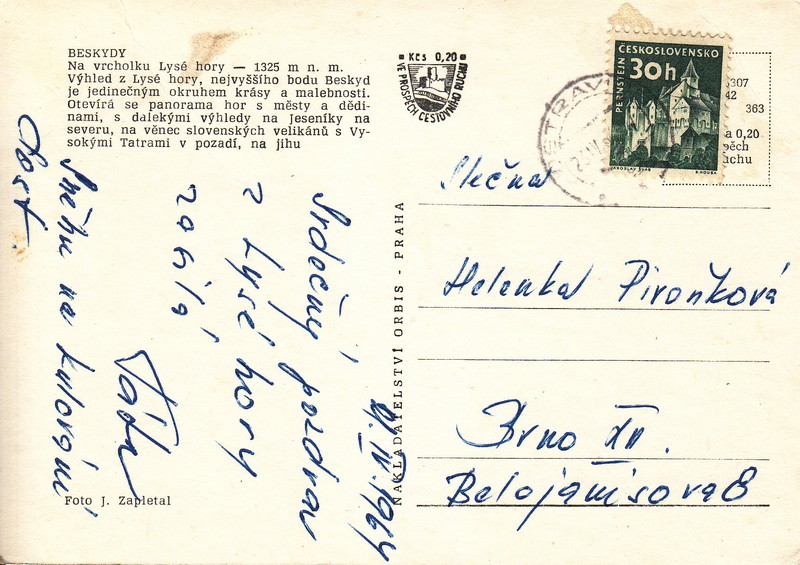 BESKYDY
Na vrcholku Lysé hory — 1325 m n. m.
Výhled z Lysé hory, nejvyššího bodu Beskyd
je jedinečným okruhem krásy a malebnosti.
Otevírá se panorama hor s městy a dědi-
nami, s dalekými výhledy na Jeseníky na
severu, na věnec slovenských velikánů s Vy-
sokými Tatrami v pozadí, na jihu
Kčs 0,20
VE PROSPĚCH CESTOVNÍHO RUCHU
ČESKOSLOVENSKO
30h
PERNŠTEJN
JAROSLAV ŠVÁB
307
42
363
a 0,20
pěch
uchu
21. IV. 1964
Srdečný pozdrav
z Lysé hory
zasílá
Sněhu na kulování
dost
Slečna
Helenka Pivoňková
Brno XII.
Belojanisova 8
NAKLADATELSTVÍ ORBIS - PRAHA
Foto J. Zapletal